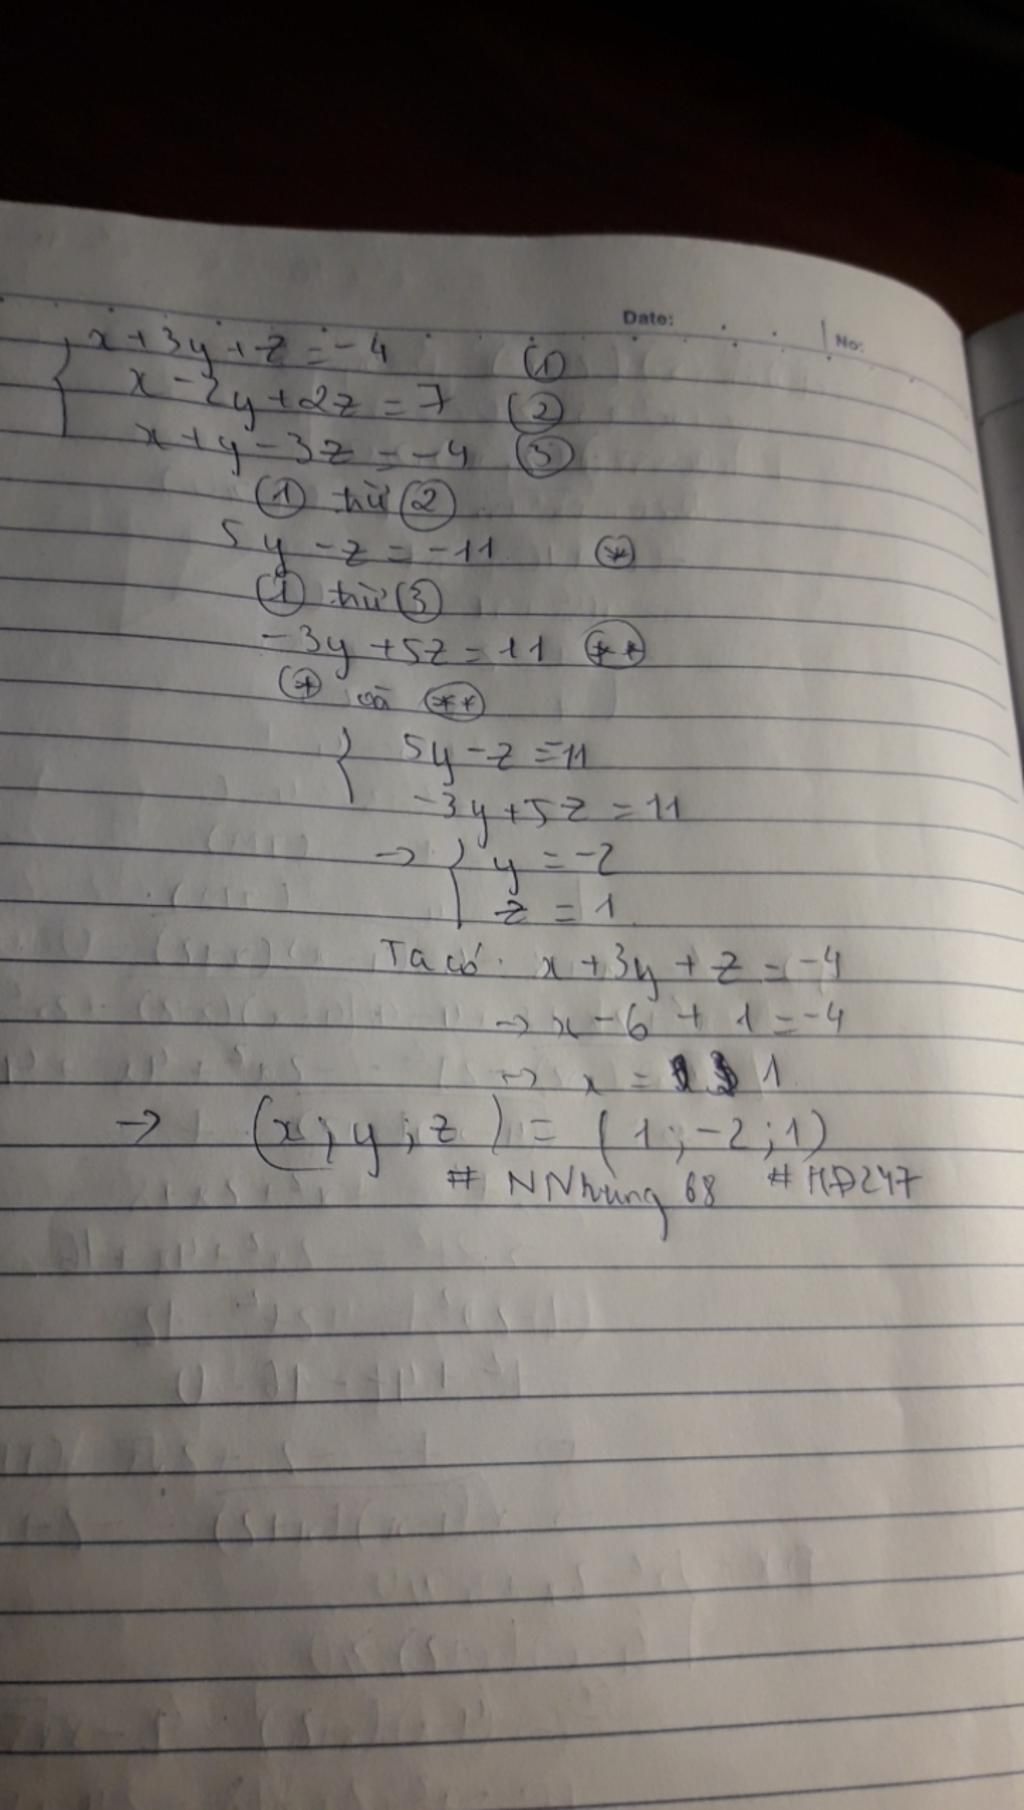 Date: No:
x + 3y + z = -4 (1)
x - 2y + 2z = 7 (2)
x + y - 3z = -4 (3)
(1) trừ (2)
5y - z = -11 (*)
(1) trừ (3)
-3y + 5z = 11 (**)
(*) và (**)
{ 5y - z = -11
-3y + 5z = 11
→ { y = -2
z = 1
Ta có: x + 3y + z = -4
→ x - 6 + 1 = -4
→ x = 1
→ (x; y; z) = (1; -2; 1)
# NNhung 68 # HD247